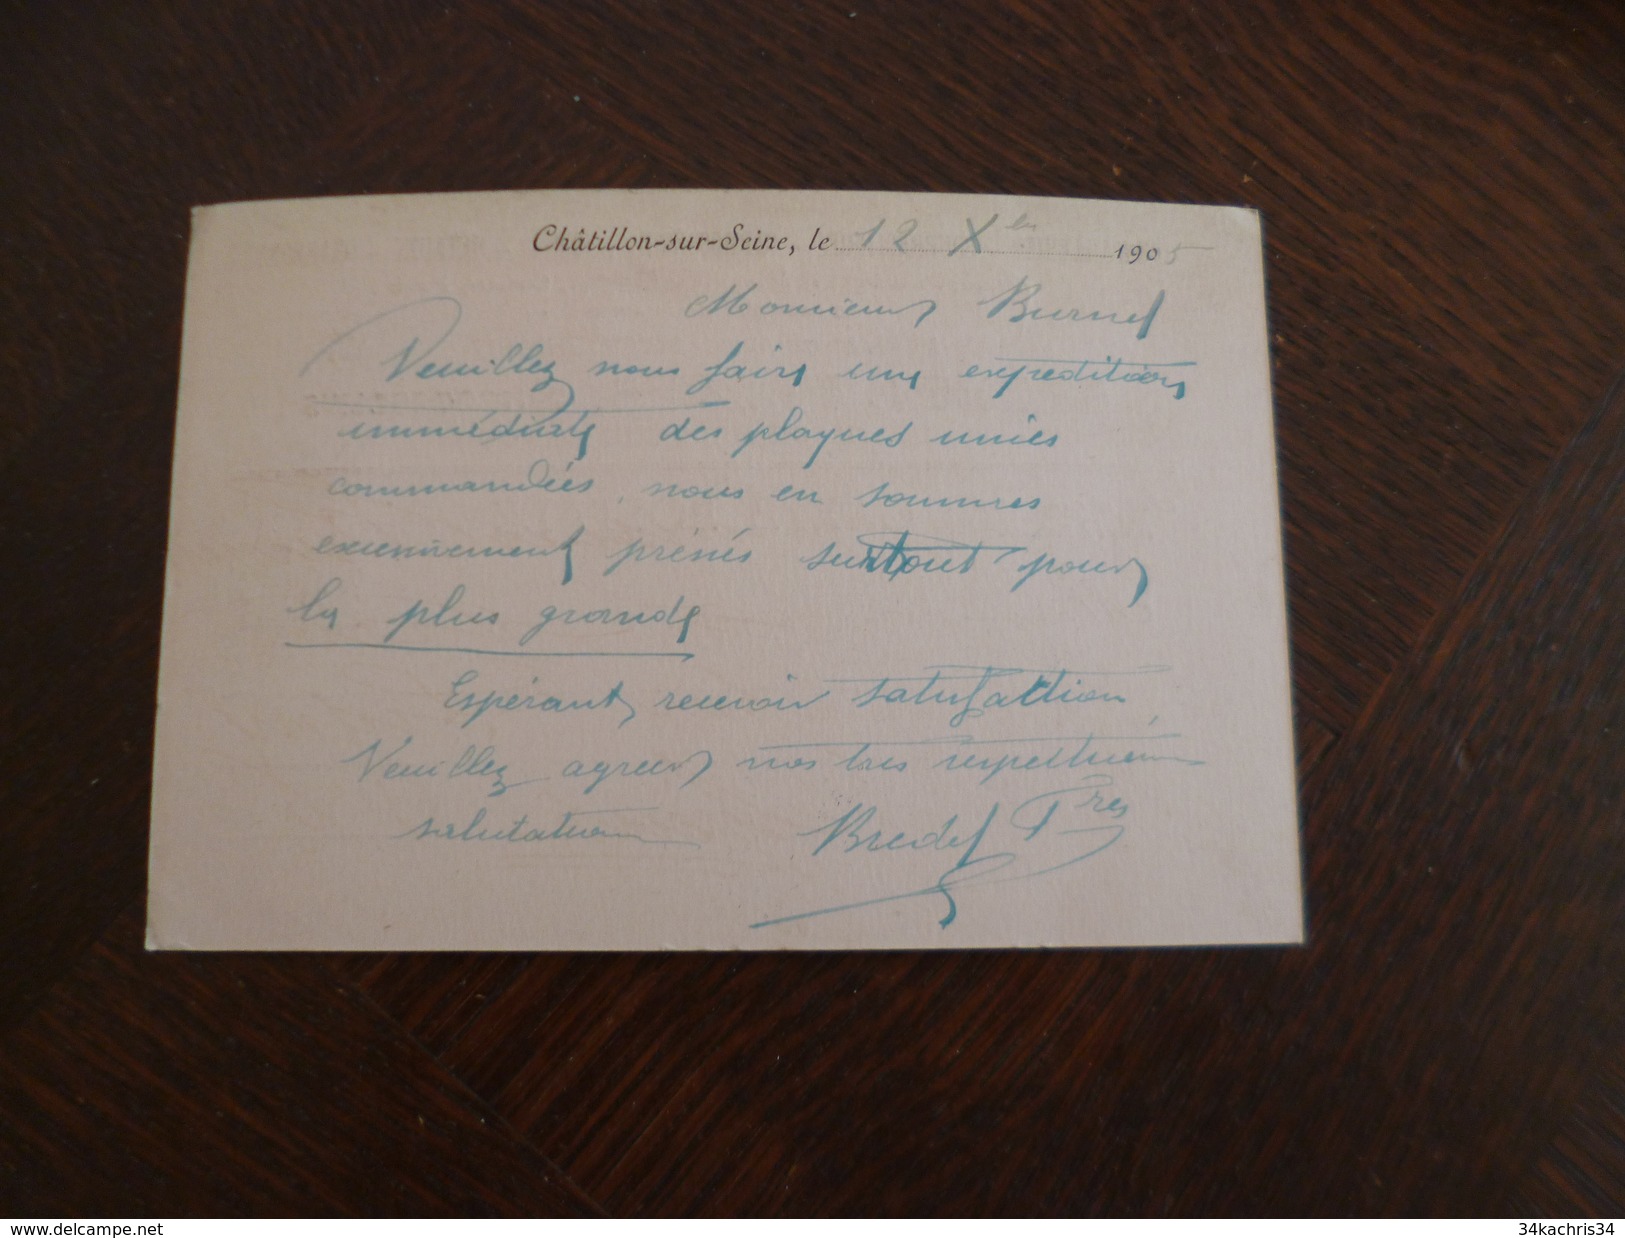 Châtillon-sur-Seine, le 12 Xbre 1905
Monsieur Burnel
Veuillez nous faire une expedition
immédiate des plaques unies
commandées, nous en sommes
excessivement pressés surtout pour
la plus grande
Espérant recevoir satisfaction
Veuillez agreer nos tres respectueuses
salutations Bredel Fres
www.delcampe.net
34kachris34